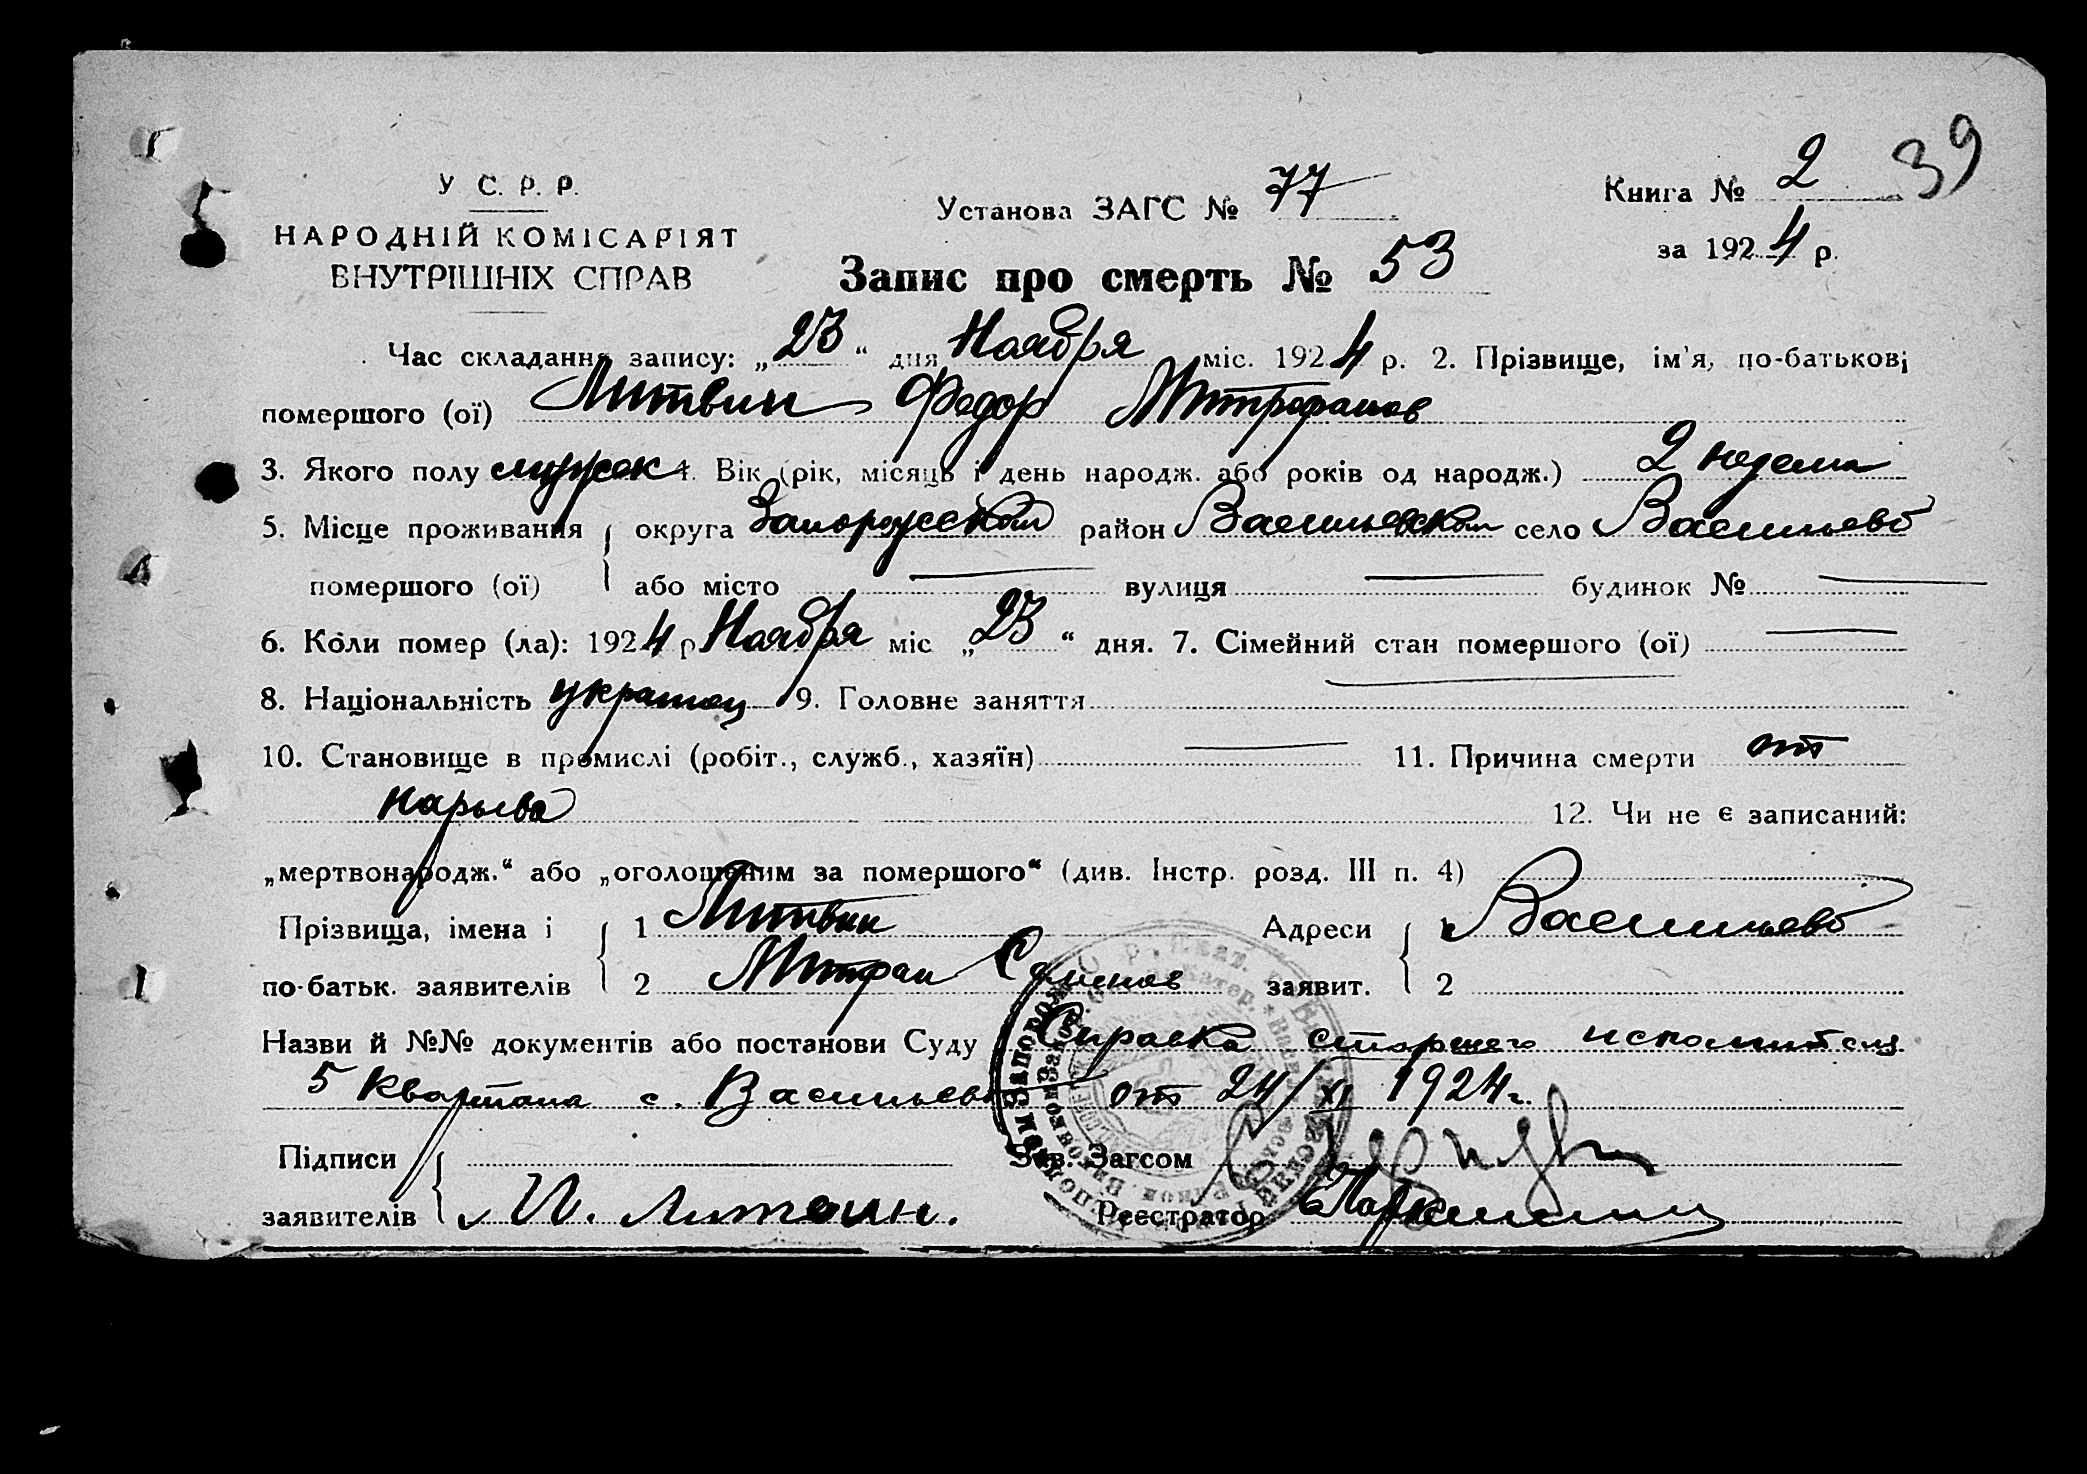 39
У С. Р. Р.
НАРОДНІЙ КОМІСАРІЯТ
ВНУТРІШНІХ СПРАВ
Установа ЗАГС № 77
Книга № 2
за 1924 р.
Запис про смерть № 53
Час складання запису: „23“ дня Ноября міс. 1924 р. 2. Прізвище, ім'я, по-батькові
помершого (ої) Литвин Федор Митрофанов
3. Якого полу мужск 4. Вік (рік, місяць і день народж. або років од народж.) 2 недели
5. Місце проживання округа Запорожской район Васильевском село Васильево
помершого (ої) або місто — вулиця — будинок № —
6. Коли помер (ла): 1924 р Ноября міс „23“ дня. 7. Сімейний стан помершого (ої) —
8. Національність украинец 9. Головне заняття —
10. Становище в промислі (робіт., служб., хазяїн) — 11. Причина смерти от
нарыва 12. Чи не є записаний:
„мертвонародж.“ або „оголошеним за помершого“ (див. Інстр. розд. III п. 4)
Прізвища, імена і 1 Литвин Адреси 1 Васильево
по-батьк. заявителів 2 Митрофан Семенов заявит. 2
Назви й №№ документів або постанови Суду Справка старшего исполнителя
5 квартала с. Васильево от 24/XI 1924 г.
Підписи Зав. Загсом
заявителів Литвин. Реєстратор